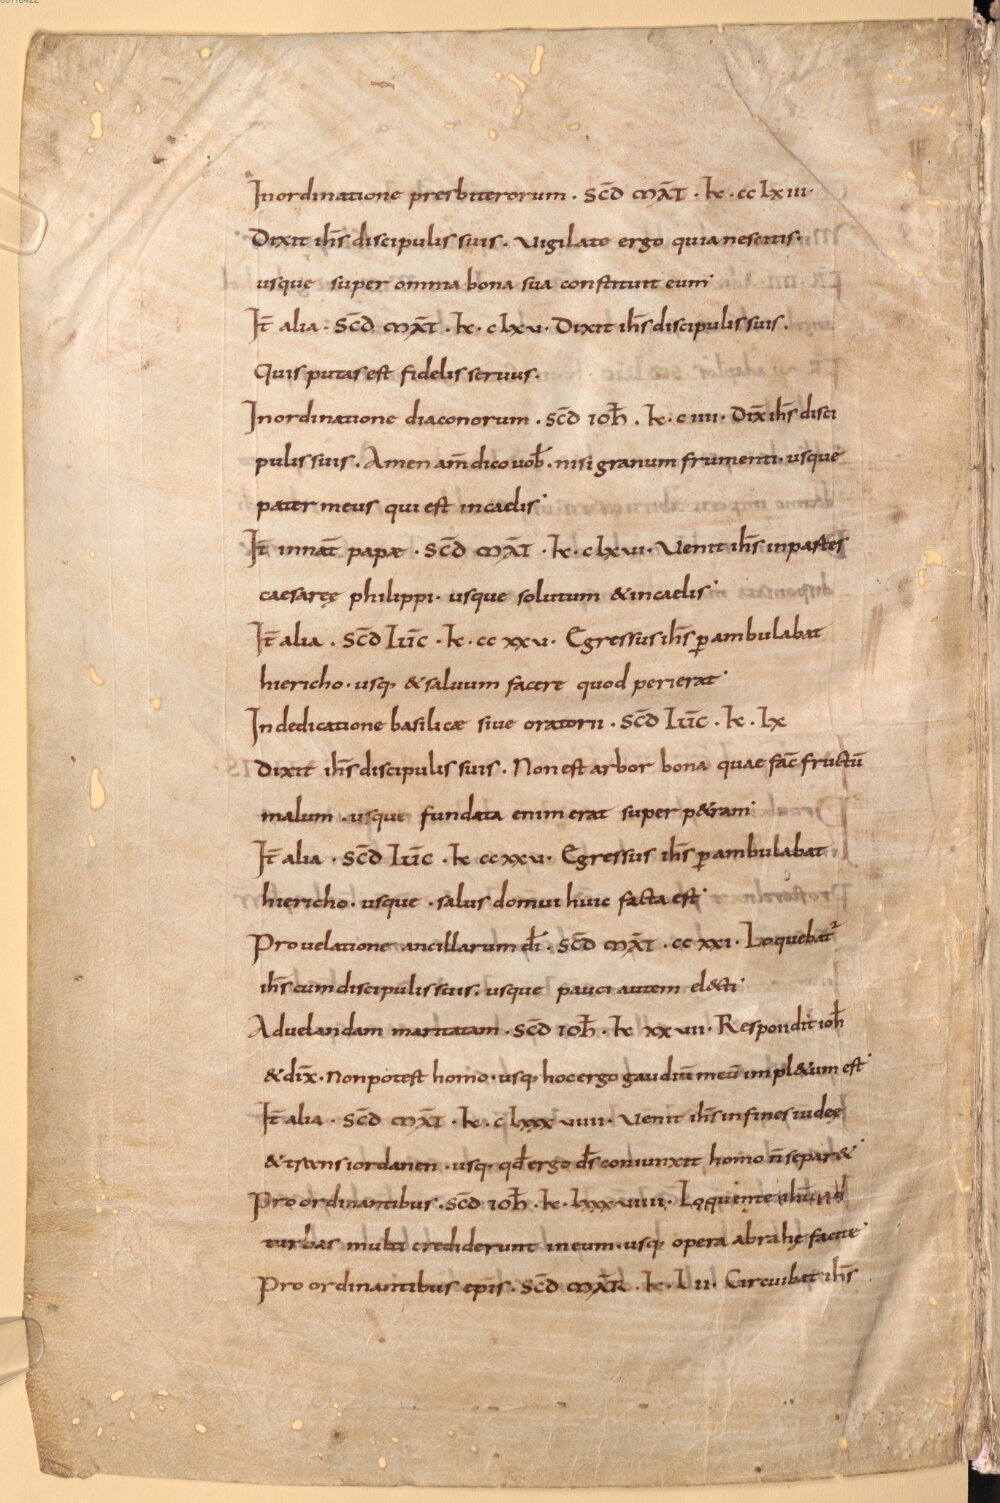 Inordinatione presbiterorum · sc̄d mᾱt · k̄ · cclxiii·
Dixit ih̄s discipulis suis · Vigilate ergo quia nescitis·
usque super omnia bona sua constituit eum·
It̄ alia · sc̄d mᾱt · k̄ · clxv· Dixit ih̄s discipulis suis ·
Quis putas est fidelis seruus·
Inordinatione diaconorum · sc̄d ioh̄ · k̄ · ciiii· Dix̄ ih̄s disci
pulis suis · Amen am̄ dico uob̄ · nisi granum frumenti· usque
pater meus qui est incaelis·
It̄ innat̄ papæ · sc̄d mᾱt · k̄ · clxvi· Venit ih̄s inpartes
caesaręę philippi· usque solutum &incaelis·
It̄ alia · sc̄d luc̄ · k̄ · ccxxv· Egressus ih̄s ꝑambulabat
hiericho · usq; &saluum facere quod perierat·
Indedicatione basilicæ siue oratorii · sc̄d luc̄ · k̄ · lx
Dixit ih̄s discipulis suis · Non est arbor bona quae fac̄ fructū
malum · usque fundata enim erat super p&ram·
It̄ alia · sc̄d luc̄ · k̄ ccxxv· Egressus ih̄s ꝑambulabat
hiericho· usque · salus domui huic facta est·
Prouelatione ancillarum dī · sc̄d mᾱt · ccxxi· Loquebat᷑
ih̄s cum discipulis suis· usque pauci autem el&cti·
Aduelandam maritatam · sc̄d ioh̄ · k̄ xxvii· Respondit ioh̄
&dix̄· Non potest homo· usq; hoc ergo gaudiū meū impl&um est·
It̄ alia · sc̄d mᾱt · k̄ · clxxxviiii· Venit ih̄s infines iudeę
&trans iordanen · usq; qd̄ ergo ds̄ coniunxit homo n̄ separ&·
Pro ordinantibus · sc̄d ioh̄ · k̄ · lxxxviiii· Loquente ihū ad
turbas multi crediderunt ineum· usq; opera abrahę facite·
Pro ordinantibus epīs · sc̄d mᾱr · k̄ · lii· Circuibat ih̄s